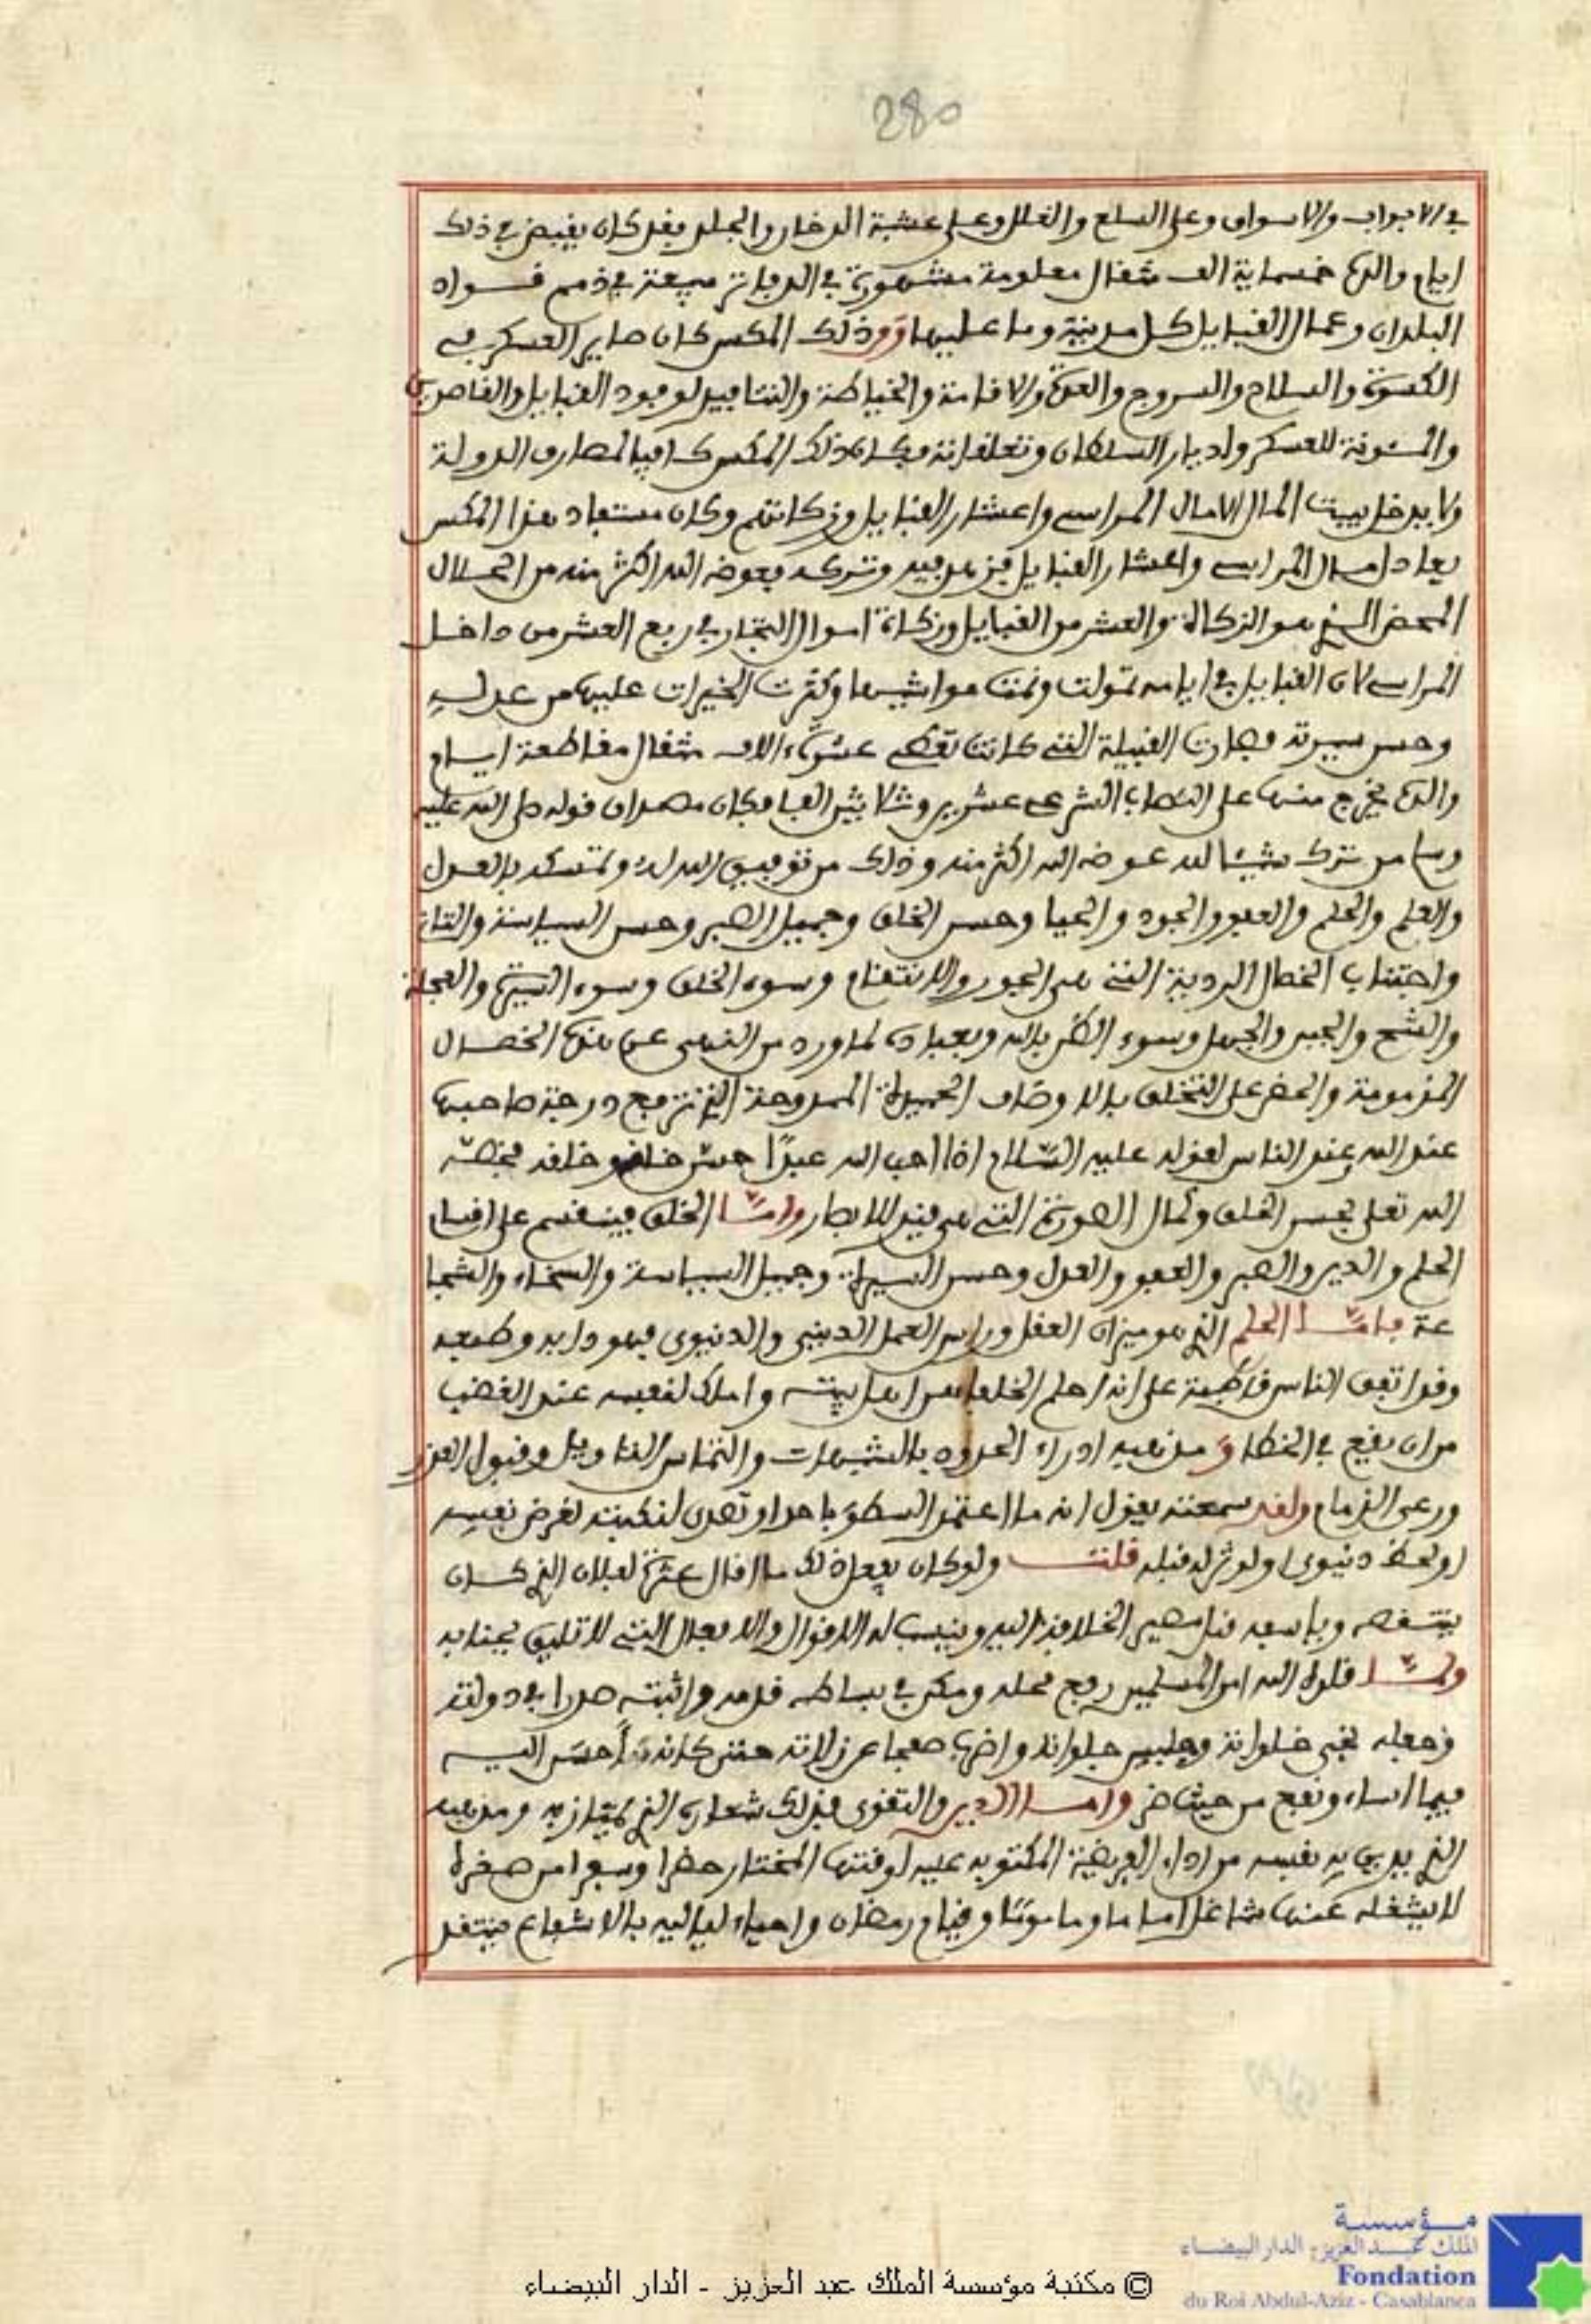 280
في الابواب والاسواق وعلى السلع والغلل وعلى عشبة الدخان والجلد فقد كان يقبض في ذلك
ايام والده خمسماية الف مثقال معلومة مشهورة في الدفاتر مبيعة في ذمم قواد
البلدان وعمال القبايل كل مدينة وما عليها وذلك المكس كان صاير العسكر في
الكسوة والسلاح والسروج والعدة والاقامة والخياطة والتنافيد لوفود القبايل والقاصرين
والمئونة للعسكر ولديار السلطان وتعلقاته فكان ذلك المكس كافيا لمصارف الدولة
ولا يدخل بيت المال الا مال المراسي واعشار القبايل وزكاتهم وكان مستفاد هذا المكس
يعادل مال المراسي واعشار القبايل فزهد فيه وتركه فعوضه الله اكثر منه من الحلال
المحض الذي هو الزكاة والعشر من القبايل وزكاة اموال التجار في ربع العشر من داخل
المراسي لان القبايل في ايامه تمولت ونمت مواشيها وكثرت الخيرات عليها من عدله
وحسن سيرته فصارت القبيلة التي كانت تعطي عشرة الاف مثقال مقاطعة ايام
والده يخرج منها على النصاب الشرعي عشرين وثلاثين الفا فكان مصداق قوله صلى الله عليه
وسلم من ترك شيئا لله عوضه الله اكثر منه وذلك من توفيق الله له وتمسكه بالعدل
والعلم والحلم والعفو والجود والحيا وحسن الخلق وجميل الصبر وحسن السياسة والتان
واجتناب الخصال الردية التي هي الجور والانتقام وسوء الخلق وسوء السيرة والعجلة
والشح والجبن والجهل وسوء الظن بالله وبعباده لما ورد من النهي عن هذه الخصال
المذمومة والحض على التخلق بالاوصاف الجميلة الممدوحة التي ترفع درجة صاحبها
عند الله وعند الناس لقوله عليه السلام اذا احب الله عبدا حسن خلقه وخلقه فخصه
الله تعلى بحسن الخلق وكمال الصورة التي هي قيد للابصار واما الخلق فينقسم على اقسام
الحلم والدين والصبر والعفو والعدل وحسن السيرة وجميل السياسة والسخاء والشجا
عة فاما الحلم الذي هو ميزان العقل وراس العمل الديني والدنيوي فهو دابه وطبعه
وقد اتفق الناس قاطبة على انه احلم الخلفاء من اهل بيته واملك لنفسه عند الغضب
من ان يقع في الخطا ومذهبه ادراء الحدود بالشبهات والتماس التاويل وقبول العذر
ورعي الذمام ولقد سمعته يقول انه ما اعتمد السطو باحد او تصدى لنكبته لغرض نفسه
او لحظ دنيوي او لوثر له قبله قلت ولو كان يفعل ذلك ما اقال عثرة لفلان الذي كان
ينتقصه وينافسه قبل مصير الخلافة اليه وينسب له الاقوال والافعال التي لا تليق بجنابه
ولما قلده الله امر المسلمين رفع محله ومكن في بساطه قدمه واثبته صدرا في دولته
وجعله نجي خلواته وجليس جلواته واضرب صفحا عن زلاته حتى كانه احسن اليه
فيما اساء ونفع من حيث ضر واما الدين والتقوى فذلك شعاره الذي يمتاز به ومذهبه
الذي يدين به نفسه من اداء الفريضة المكتوبه عليه لوقتها المختار حضرا وسفرا من صغره
لا يشغله عنها شاغل اماما وماموما وقيام رمضان واحياء لياليه بالاشفاع ينتقد
© مكتبة مؤسسة الملك عبد العزيز - الدار البيضاء
مؤسسة
الملك عبد العزيز، الدار البيضاء
Fondation
du Roi Abdul-Aziz - Casablanca